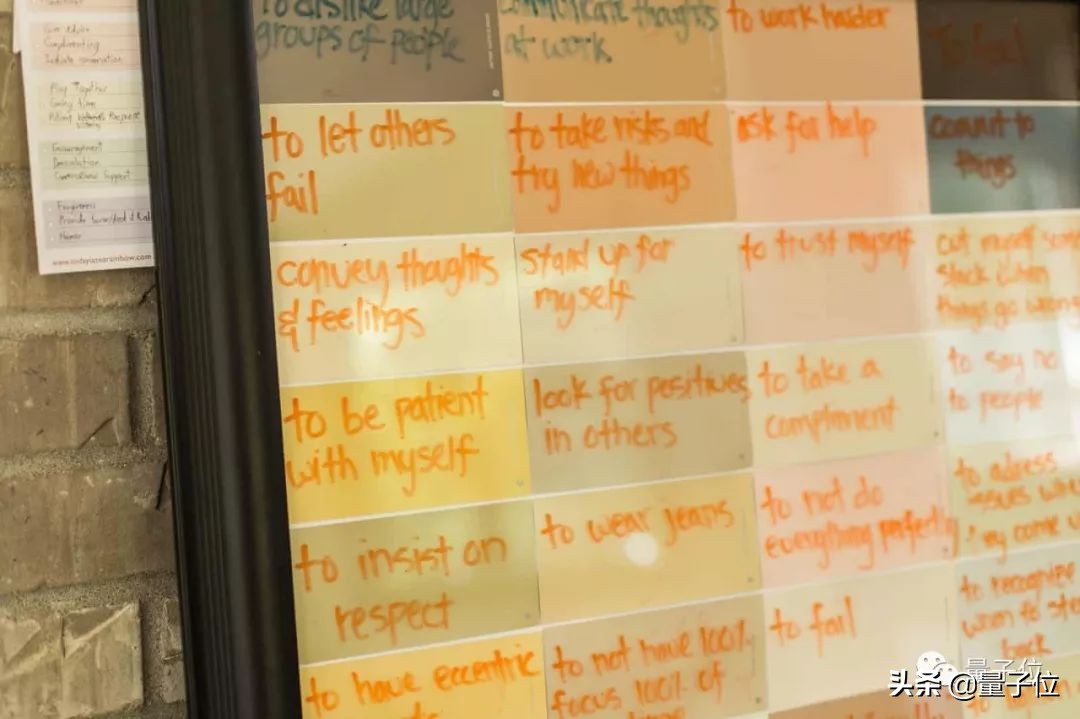 Complimenting
Initiate conversation
Play Together
Giving time
Encouragement
Consolation
Forgiveness
Humor
to dislike large
groups of people
communicate thoughts
at work
to work harder
To feel
to let others
fail
to take risks and
try new things
ask for help
commit to
things
convey thoughts
& feelings
stand up for
myself
to trust myself
cut myself some
slack when
things go wrong
to be patient
with myself
look for positives
in others
to take a
compliment
to say no
to people
to insist on
respect
to wear jeans
to not do
everything perfectly
to adress
issues when
they come u
to have eccentric
to not have 100%
focus 100% of
to fail
to recognize
when to step
back
量子位
头条 @量子位